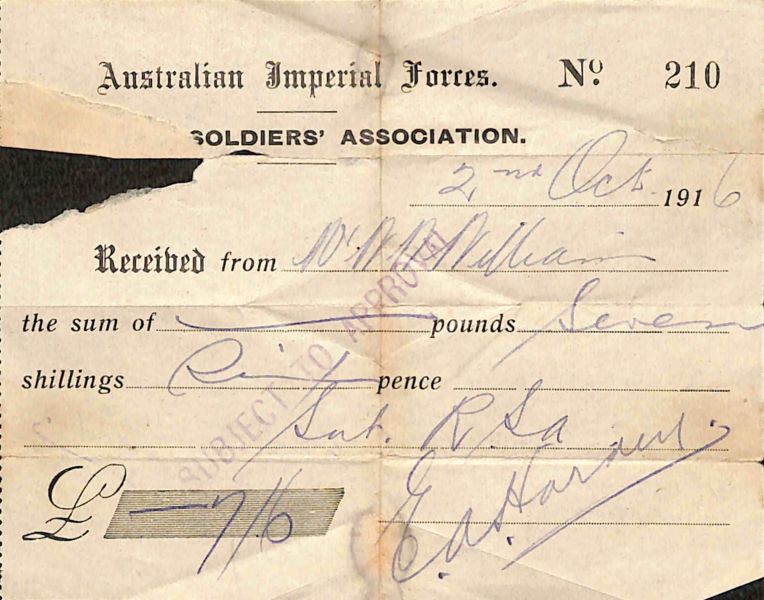 Australian Imperial Forces. No. 210
SOLDIERS' ASSOCIATION.
2nd Oct. 1916
Received from Mr W. Williams
the sum of — pounds Seven
shillings pence
Sub. R.S.a
SUBJECT TO APPROVAL
£ — 7/6